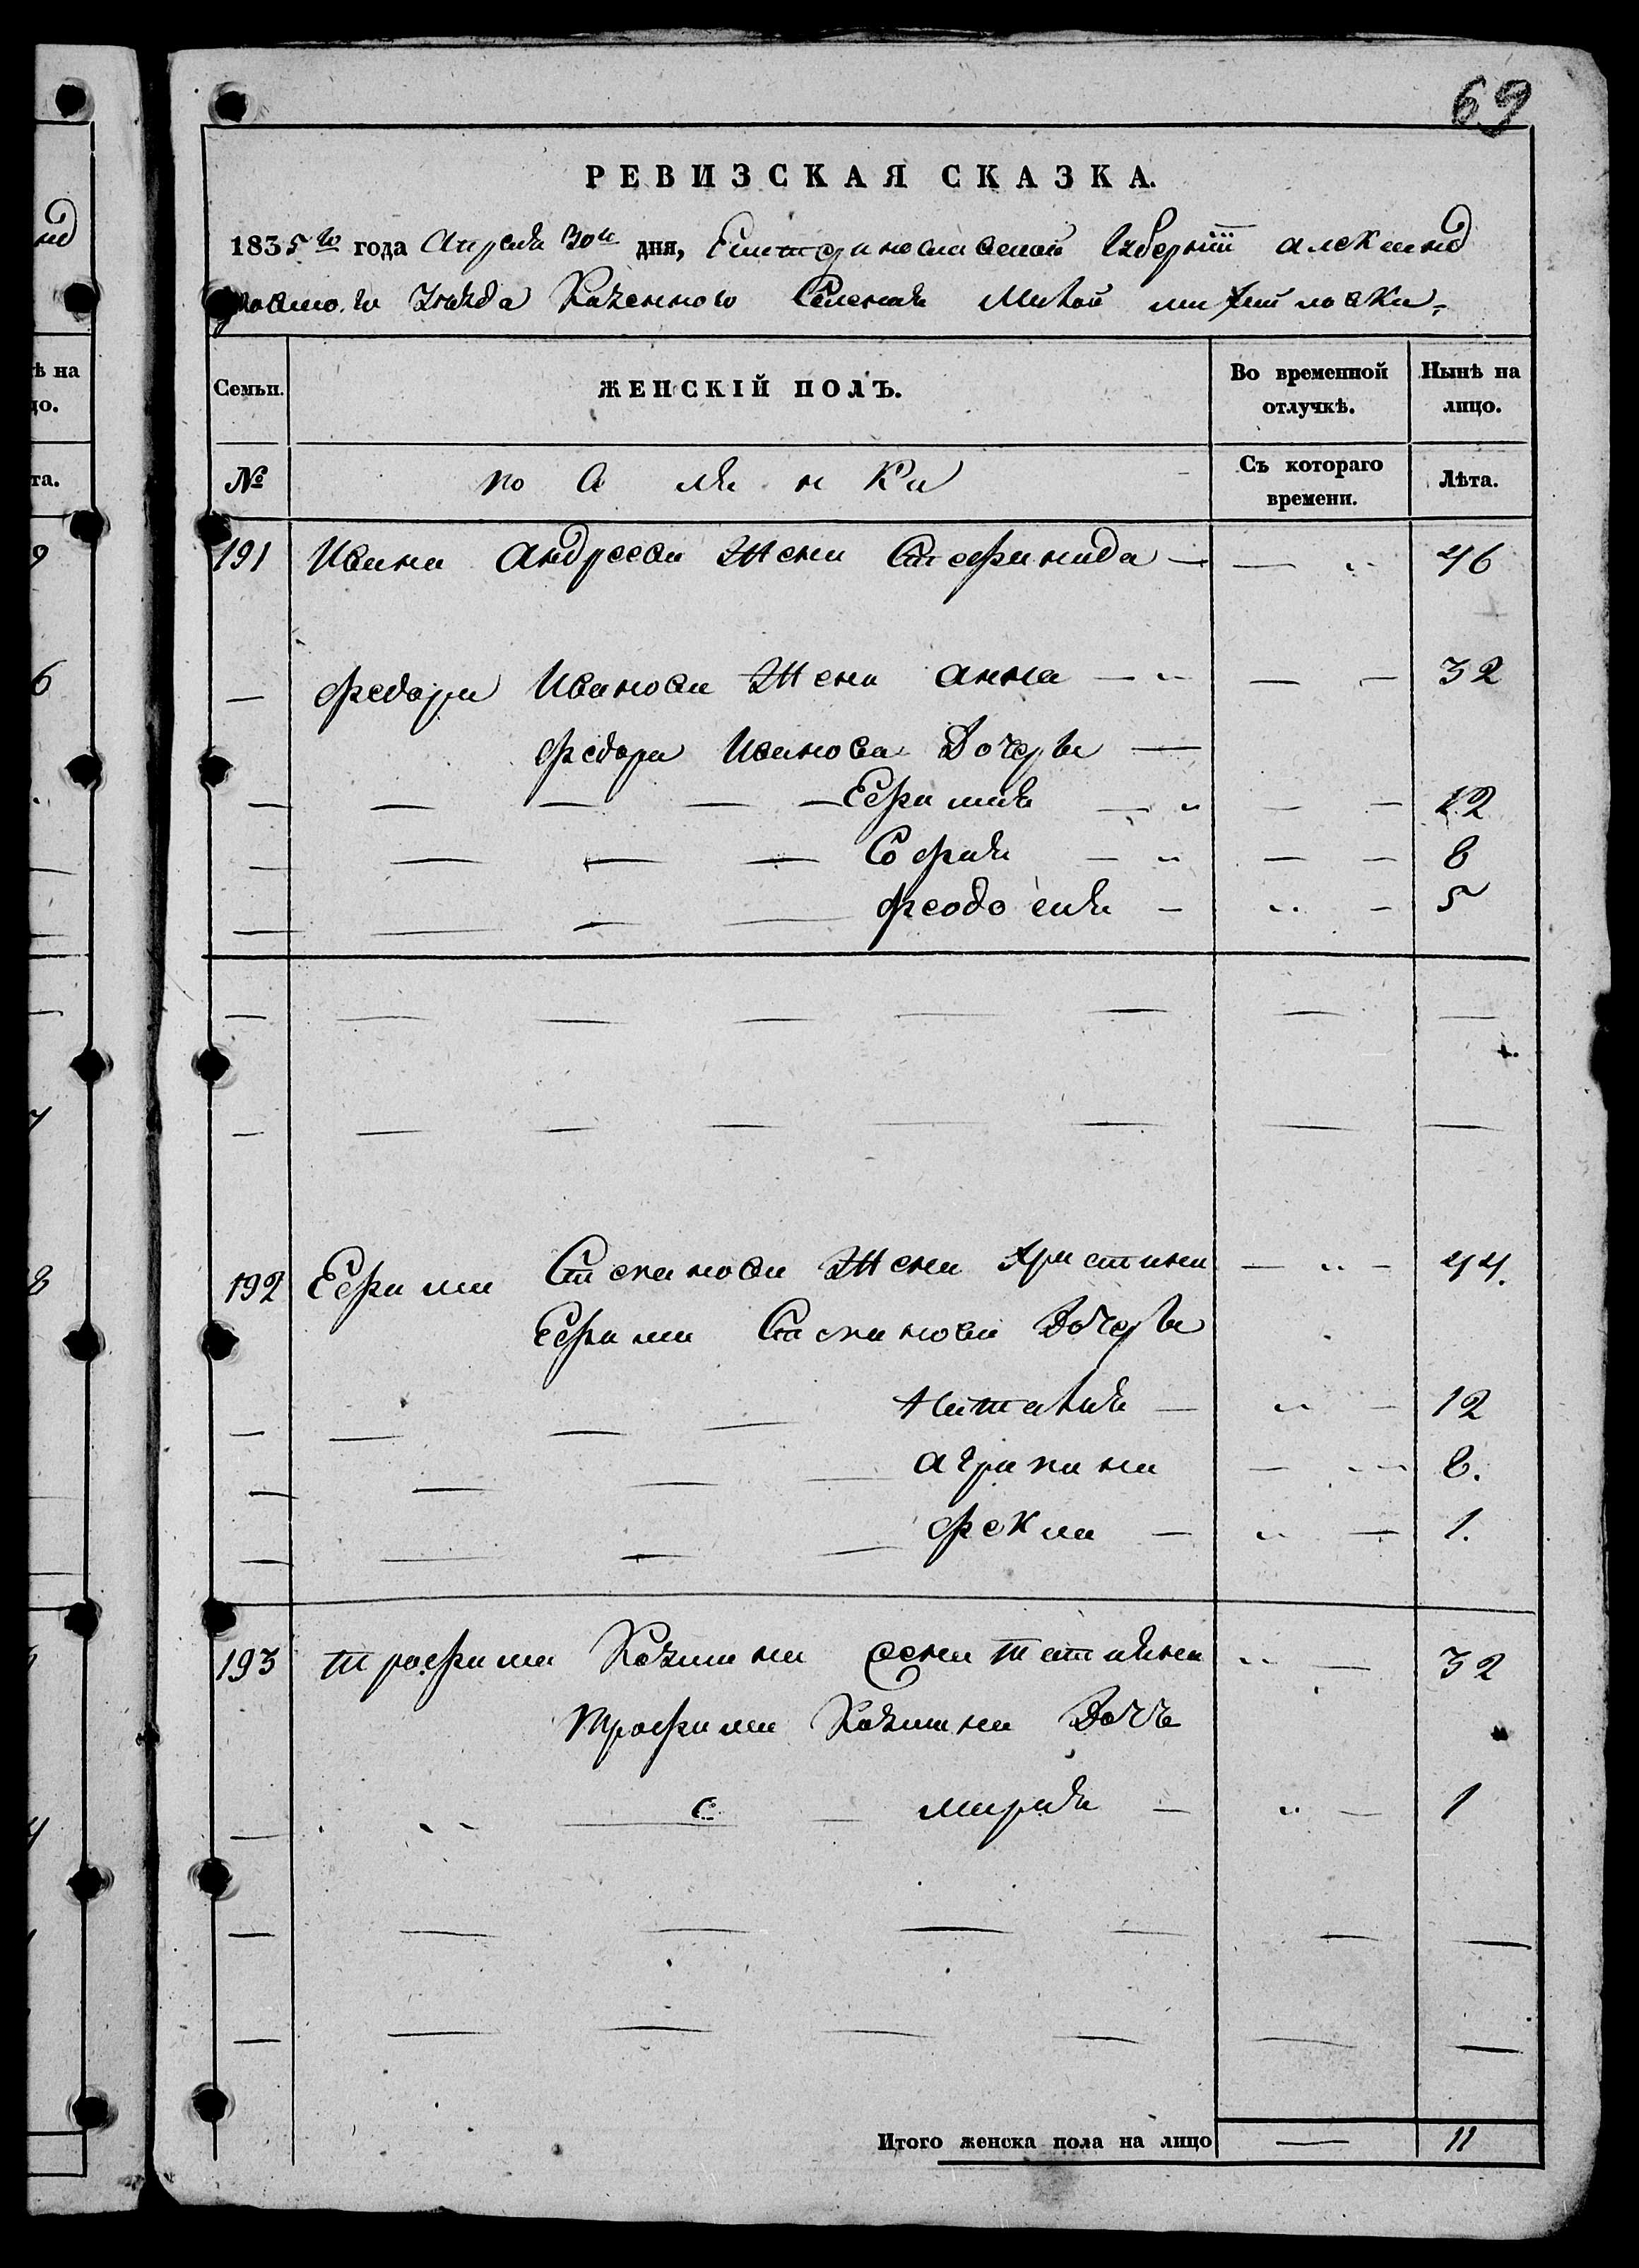 69
РЕВИЗСКАЯ СКАЗКА.
1835го года Апреля 30го дня, Екатеринославской Губернiи Александ
ровского Уезда Казенного Селения Малой Михайловки
Семьи. ЖЕНСКІЙ ПОЛЪ. Во временной отлучкѣ. Нынѣ на лицо.
№ Съ котораго времени. Лѣта.
191 Ивана Андреева Жена Стефанида 46
Федора Иванова Жена Анна 32
Федора Иванова Дочеры
Ефимия 12
София 8
Феодосия 5
192 Ефима Степанова Жена Христина 44.
Ефима Степанова Дочеры
Наталия 12
Агрипина 8.
Фекла 1.
193 Трофима Козмина Жена Татияна 32
Трофима Козмина Дочь
Мария 1
Итого женска пола на лицо 11
ѣ на
цо.
та.